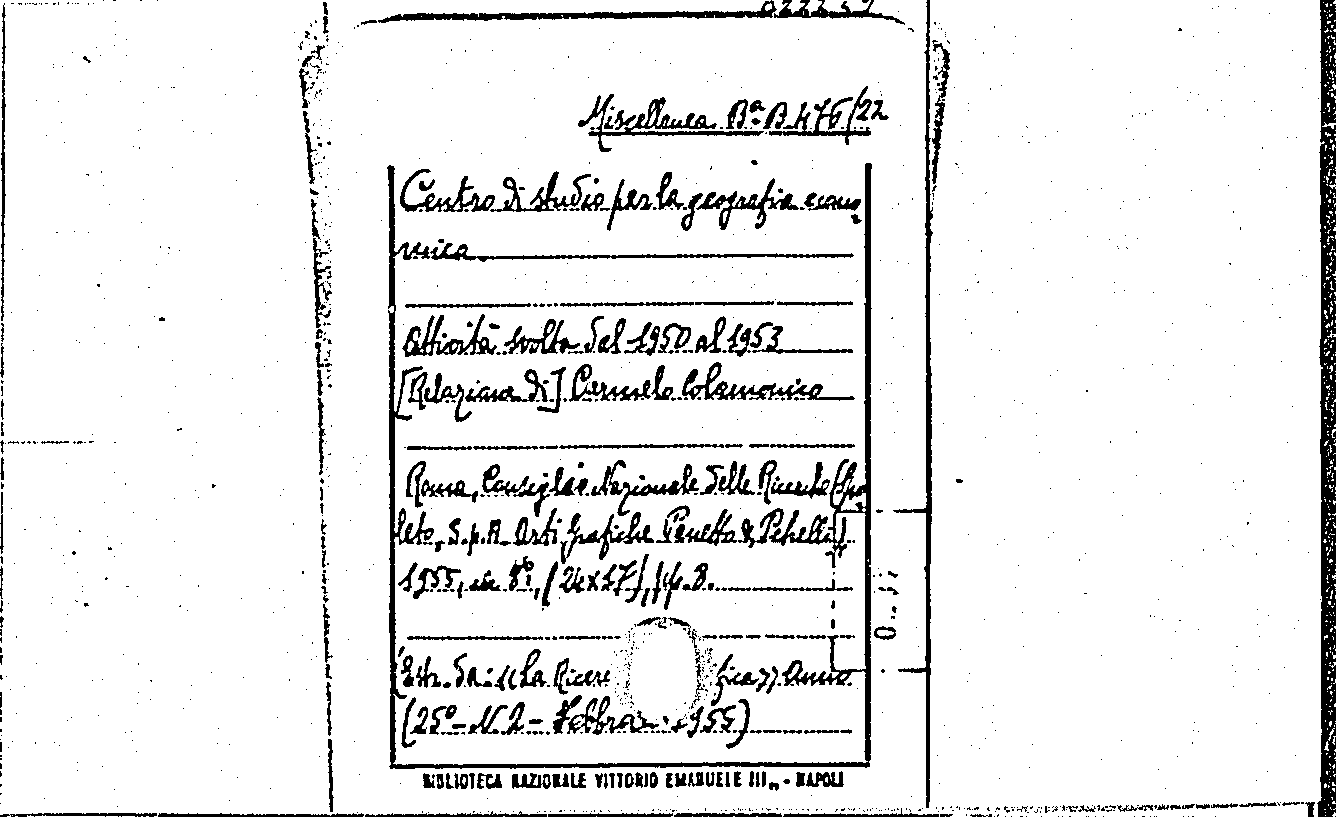 Miscellanea Bª B 476/22
Centro di studio per la geografia econo
mica.
Attività svolta dal 1950 al 1953
[Relazione di] Carmelo Colamonico
Roma, Consiglio Nazionale delle Ricerche (Spo
leto, S.p.A. Arti Grafiche Panetto & Petrelli)
1955, in 8°, (24x17), pp. 8.
(Estr. da: "La Ricer fica" Anno
(25° - N. 2 - Febbra 1955)
BIBLIOTECA NAZIONALE VITTORIO EMANUELE III„ - NAPOLI